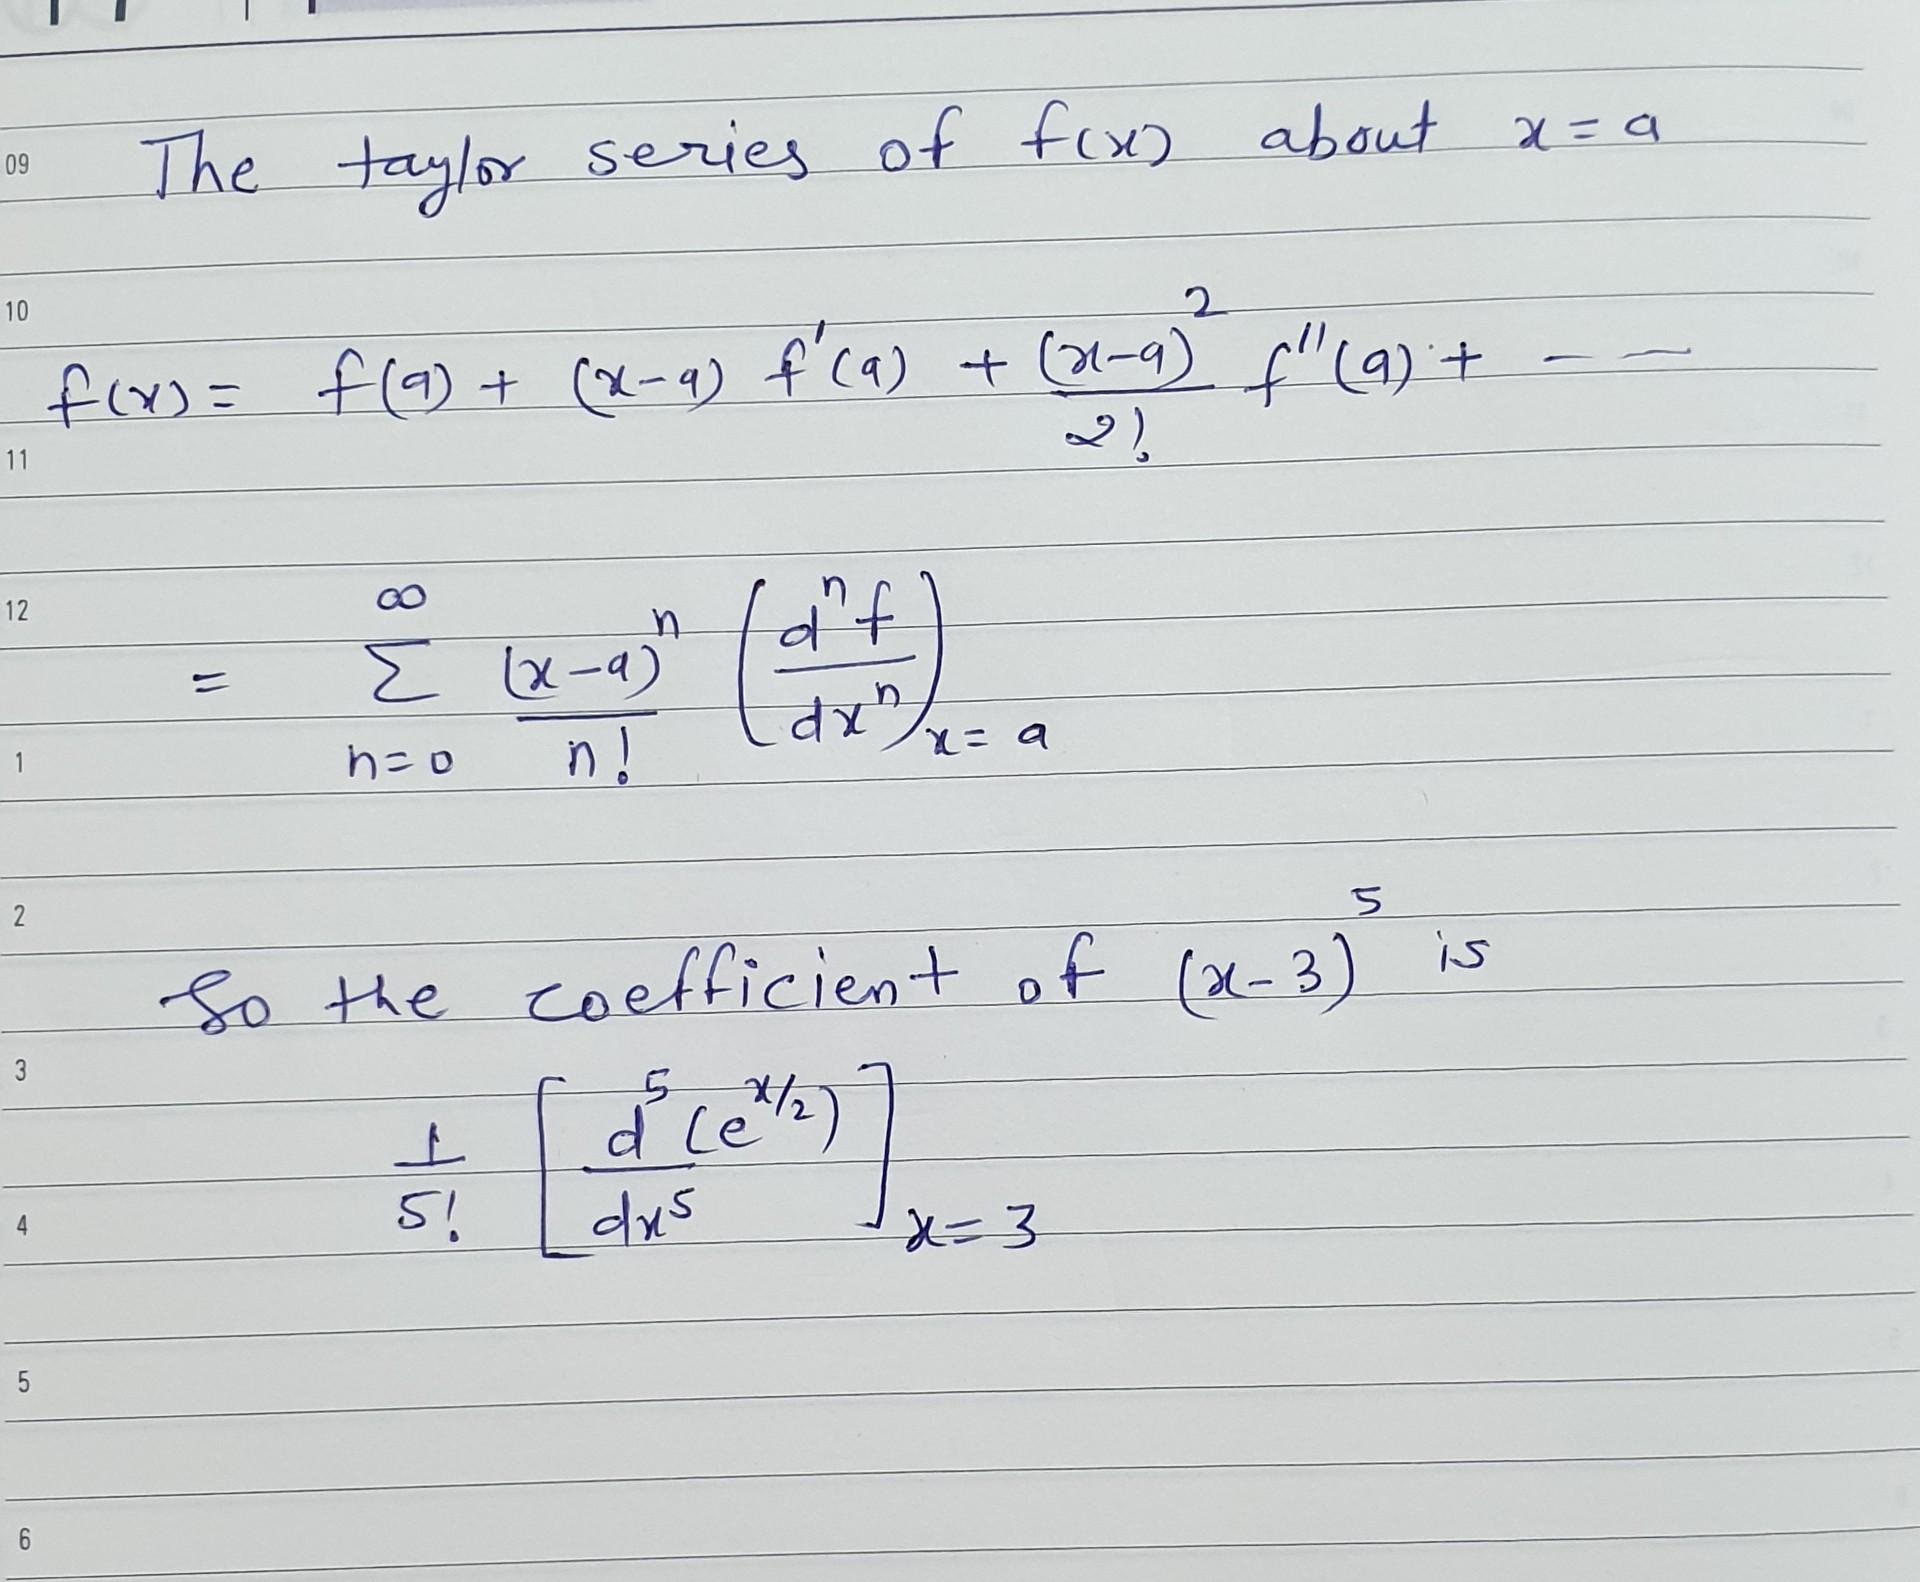 09 The taylor series of f(x) about x = a
10
f(x) = f(a) + (x-a) f'(a) + (x-a)²/2! f''(a) + - -
11
12
= ∞ Σ n=0 (x-a)ⁿ/n! (dⁿf/dxⁿ) x = a
1
2
So the coefficient of (x-3)⁵ is
3
1/5! [d⁵(e^x/2)/dx⁵] x = 3
4
5
6